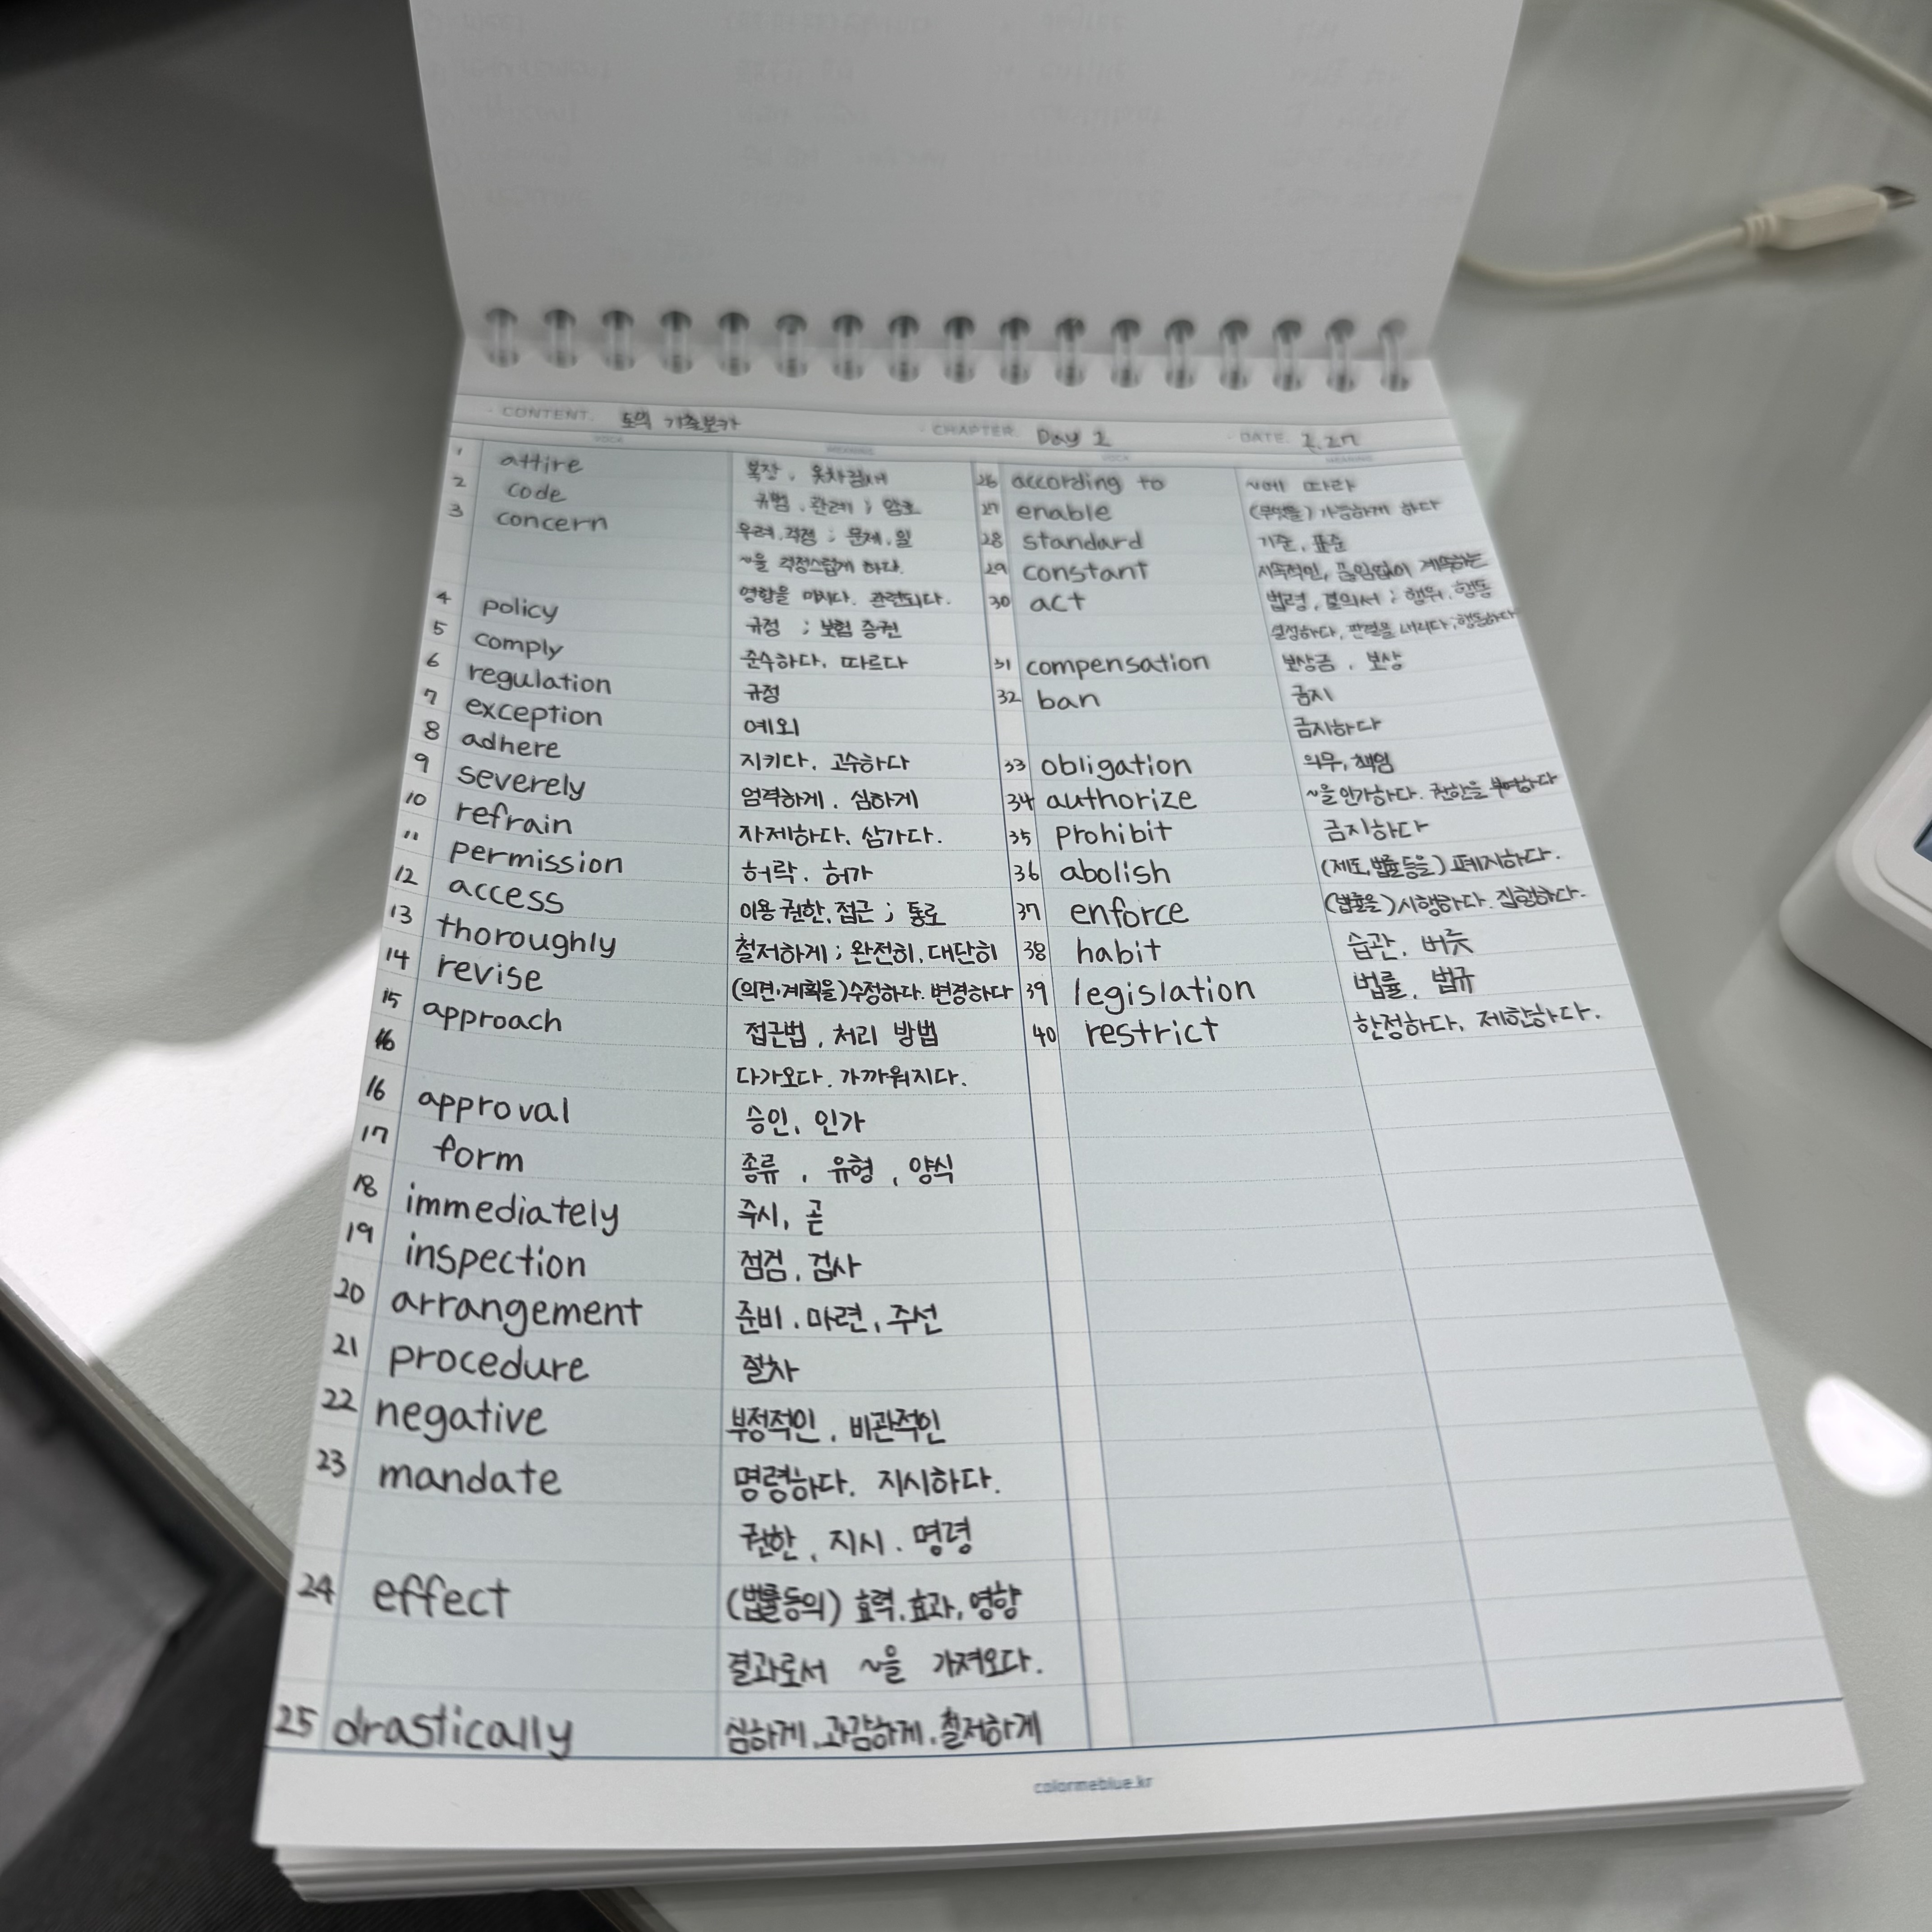 CONTENT. 토익 기출보카
CHAPTER. Day 1
DATE. 2.27
VOCA MEANING VOCA MEANING
1 attire 복장, 옷차림새
2 code 규범, 관례; 암호
3 concern 우려, 걱정; 문제, 일
~을 걱정스럽게 하다.
영향을 미치다. 관련되다.
4 policy 규정 ; 보험 증권
5 comply 준수하다, 따르다
6 regulation 규정
7 exception 예외
8 adhere 지키다, 고수하다
9 severely 엄격하게, 심하게
10 refrain 자제하다, 삼가다.
11 permission 허락, 허가
12 access 이용 권한, 접근; 통로
13 thoroughly 철저하게; 완전히, 대단히
14 revise (의견·계획을) 수정하다. 변경하다
15 approach 접근법, 처리 방법
다가오다. 가까워지다.
16 approval 승인, 인가
17 form 종류, 유형, 양식
18 immediately 즉시, 곧
19 inspection 점검, 검사
20 arrangement 준비, 마련, 주선
21 procedure 절차
22 negative 부정적인, 비관적인
23 mandate 명령하다. 지시하다.
권한, 지시. 명령
24 effect (법률등의) 효력, 효과, 영향
결과로서 ~을 가져오다.
25 drastically 심하게, 과감하게, 철저하게
26 according to ~에 따라
27 enable (무엇을) 가능하게 하다
28 standard 기준, 표준
29 constant 지속적인, 끊임없이 계속하는
30 act 법령, 결의서; 행위, 행동
결정하다, 판결을 내리다; 행동하다
31 compensation 보상금, 보상
32 ban 금지
금지하다
33 obligation 의무, 책임
34 authorize ~을 인가하다. 권한을 부여하다
35 prohibit 금지하다
36 abolish (제도, 법률 등을) 폐지하다.
37 enforce (법률을) 시행하다. 집행하다.
38 habit 습관, 버릇
39 legislation 법률, 법규
40 restrict 한정하다, 제한하다.
colormeblue.kr